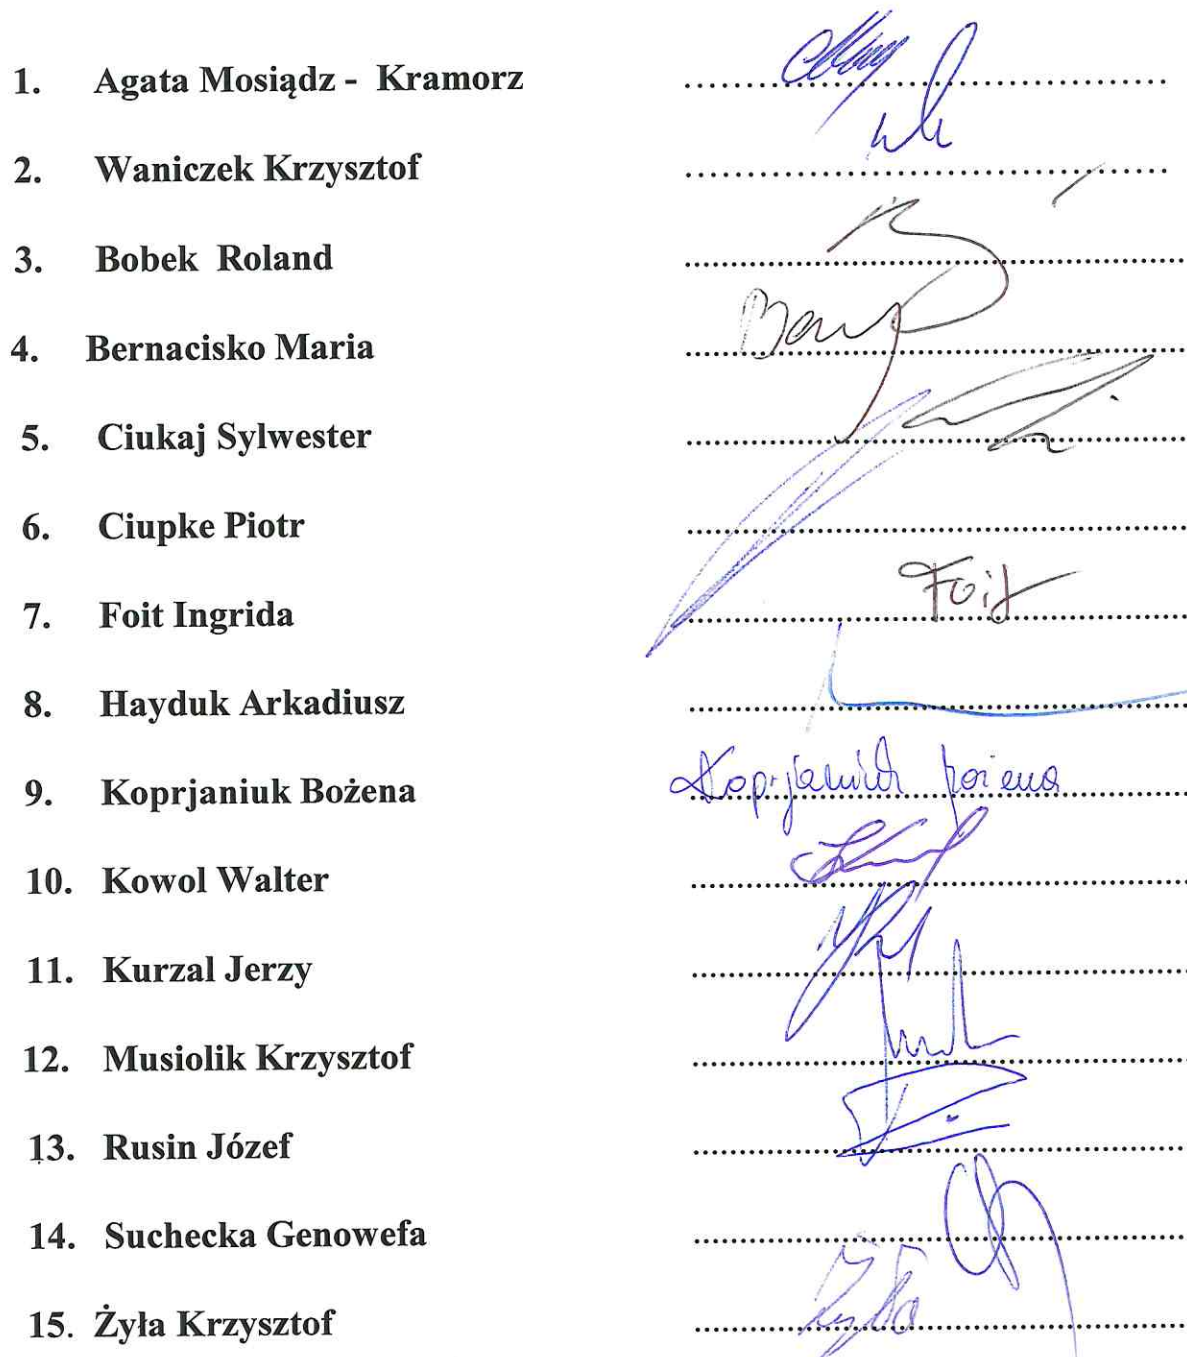 1. Agata Mosiądz - Kramorz ........................................
2. Waniczek Krzysztof ........................................
3. Bobek Roland ........................................
4. Bernacisko Maria ........................................
5. Ciukaj Sylwester ........................................
6. Ciupke Piotr ........................................
7. Foit Ingrida Foit
8. Hayduk Arkadiusz ........................................
9. Koprjaniuk Bożena Koprjaniuk Bożena
10. Kowol Walter ........................................
11. Kurzal Jerzy ........................................
12. Musiolik Krzysztof ........................................
13. Rusin Józef ........................................
14. Suchecka Genowefa ........................................
15. Żyła Krzysztof ........................................